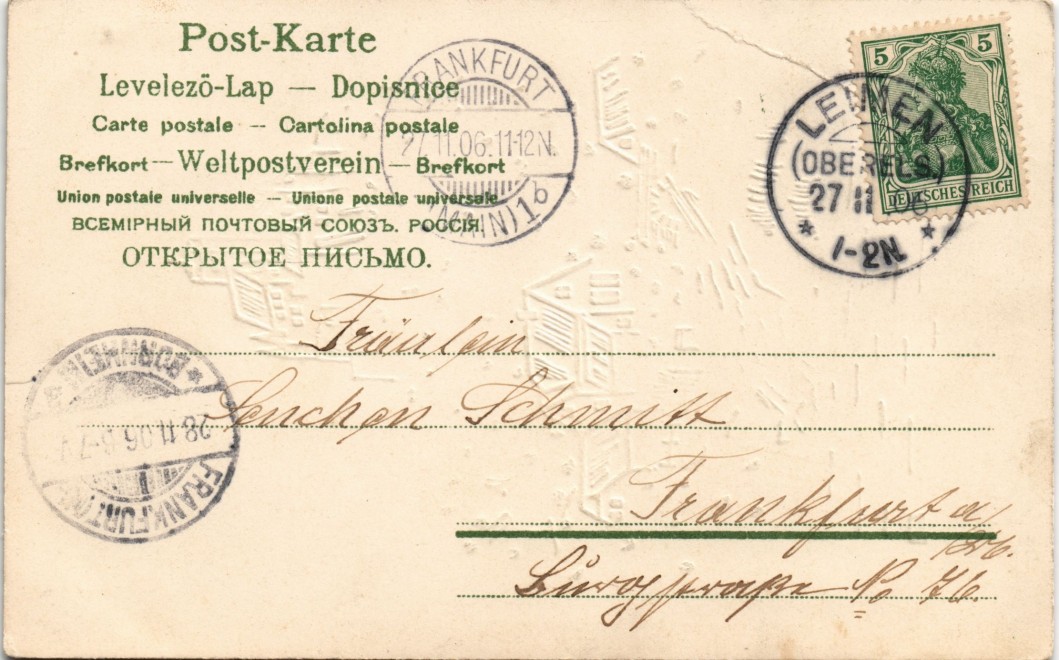 Post-Karte
Levelezõ-Lap — Dopisnice
Carte postale — Cartolina postale
Brefkort — Weltpostverein — Brefkort
Union postale universelle — Unione postale universale
ВСЕМІРНЫЙ ПОЧТОВЫЙ СОЮЗЪ. РОССІЯ.
ОТКРЫТОЕ ПИСЬМО.
FRANKFURT
27.11.06.11-12N.
(MAIN) 1b
5 5
DEUTSCHES REICH
LEIMEN
(OBERELS.)
27 11 06
* 1-2N. *
Fräulein
Lenchen Schmitt
Frankfurt a/
M.
Burgstraße No 76.
* BORNHEIM *
28.11.06. 6-7V
FRANKFURT